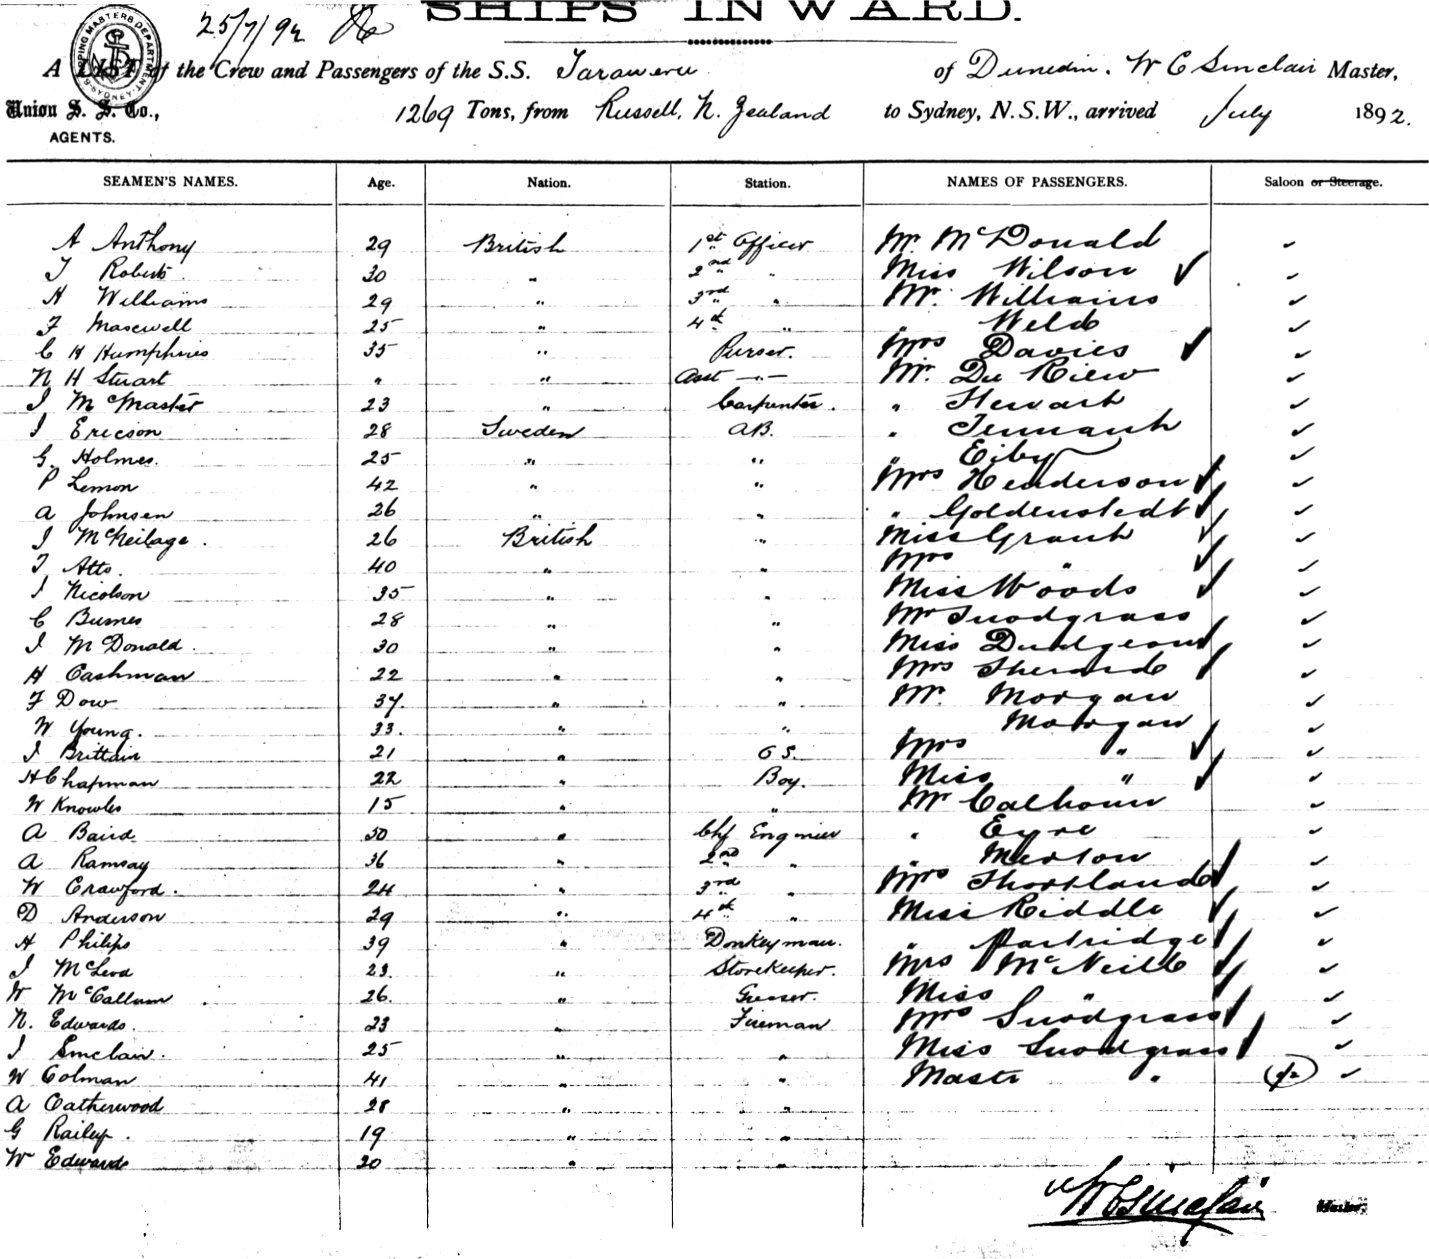 SHIPS INWARD.
25/7/92
SHIPPING MASTERS DEPARTMENT SYDNEY
A LIST of the Crew and Passengers of the S.S. Tarawera of Dunedin, W C Sinclair Master,
Union S. S. Co., 1269 Tons, from Russell, N. Zealand to Sydney, N.S.W., arrived July 1892.
AGENTS.
SEAMEN'S NAMES. Age. Nation. Station. NAMES OF PASSENGERS. Saloon or Steerage.
A Anthony 29 British 1st Officer Mr. McDonald ✓
T Roberts 30 " 2nd " Miss Wilson ✓ ✓
H Williams 29 " 3rd " Mr. Williams ✓
F Maxwell 25 " 4th " " Weld ✓
C H Humphries 35 " Purser. Mrs Davies ✓ ✓
N H Stuart " " Asst —"— Mr. Du Rieu ✓
J McMaster 23 " Carpenter. " Stewart ✓
J Ericson 28 Sweden AB. " Tennant ✓
G. Holmes. 25 " " " Eiby ✓
P Lemon 42 " " Mrs Henderson ✓ ✓
A Johnsen 26 " " " Goldenstedt ✓ ✓
J McNeilage. 26 British " Miss Grant ✓ ✓
T Atto. 40 " Mrs " ✓ ✓
J Nicolson 35 " " Miss Woods ✓ ✓
C Burnes 28 " " Mr Snodgrass ✓
J McDonald. 30 " " Miss Dudgeon ✓ ✓
H Cashman 22 " " Mrs Sherard ✓ ✓
F Dow 37. " " Mr. Morgan ✓
W Young. 33. " " Morgan ✓
J Brittain 21 " O S. Mrs " ✓ ✓
H Chapman 22 " Boy. Miss " ✓ ✓
W Knowles 15 " " Mr Calhoun ✓
A Baird 50 " Chf Engineer " Eyre ✓
A Ramsay 36 " 2nd " " Merton ✓
W Crawford. 24 " 3rd " Mrs Shortland ✓ ✓
D Anderson 29 " 4th " Miss Riddle ✓ ✓
H Philips 39 " Donkeyman. " Partridge ✓ ✓
J McLeod 23. " Storekeeper. Mrs McNeill ✓ ✓
W McCallum 26. " Greaser. Miss " ✓ ✓
N. Edwards. 23 " Fireman Mrs Snodgrass ✓ ✓
J Sinclair. 25 " " Miss Snodgrass ✓ ✓
W Colman 41 " " Master " ✓
A Catherwood 28 " "
G Railey. 19 " "
W Edwards 20 " "
W C Sinclair Master.